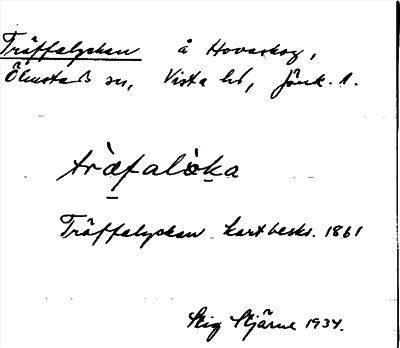 Träffalyckan å Hovaskog,
Ölmstad sn, Vista hd, Jönk. l.
träfalåka
Träffalyckan kartbeskr. 1861
Stig Stjärne 1934.